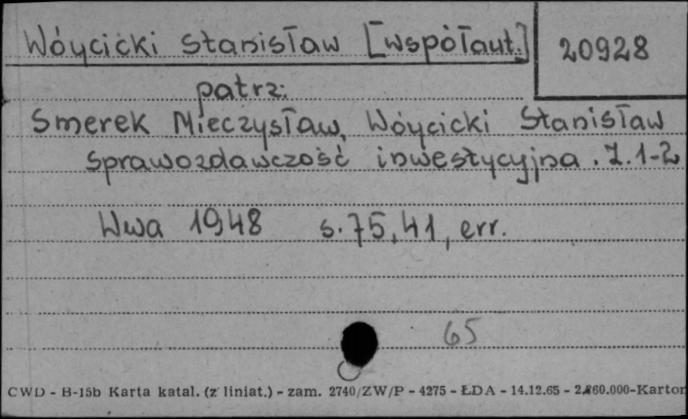 Wóycicki Stanisław [współaut.]
20928
patrz:
Smerek Mieczysław, Wóycicki Stanisław
Sprawozdawczość inwestycyjna. Z. 1-2
Wwa 1948 s. 75, 41, err.
65
CWD - B-15b Karta katal. (z liniat.) - zam. 2740/ZW/P - 4275 - ŁDA - 14.12.65 - 2.260.000-Karton